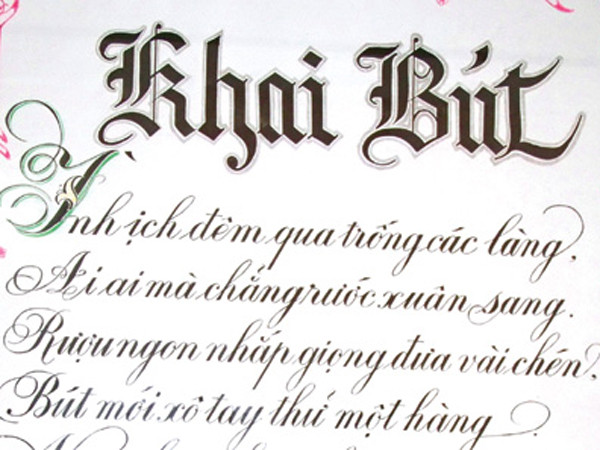 Khai Bút
Ình ịch đêm qua trống các làng,
Ai ai mà chẳng rước xuân sang.
Rượu ngon nhắp giọng đưa vài chén,
Bút mới xô tay thử một hàng.